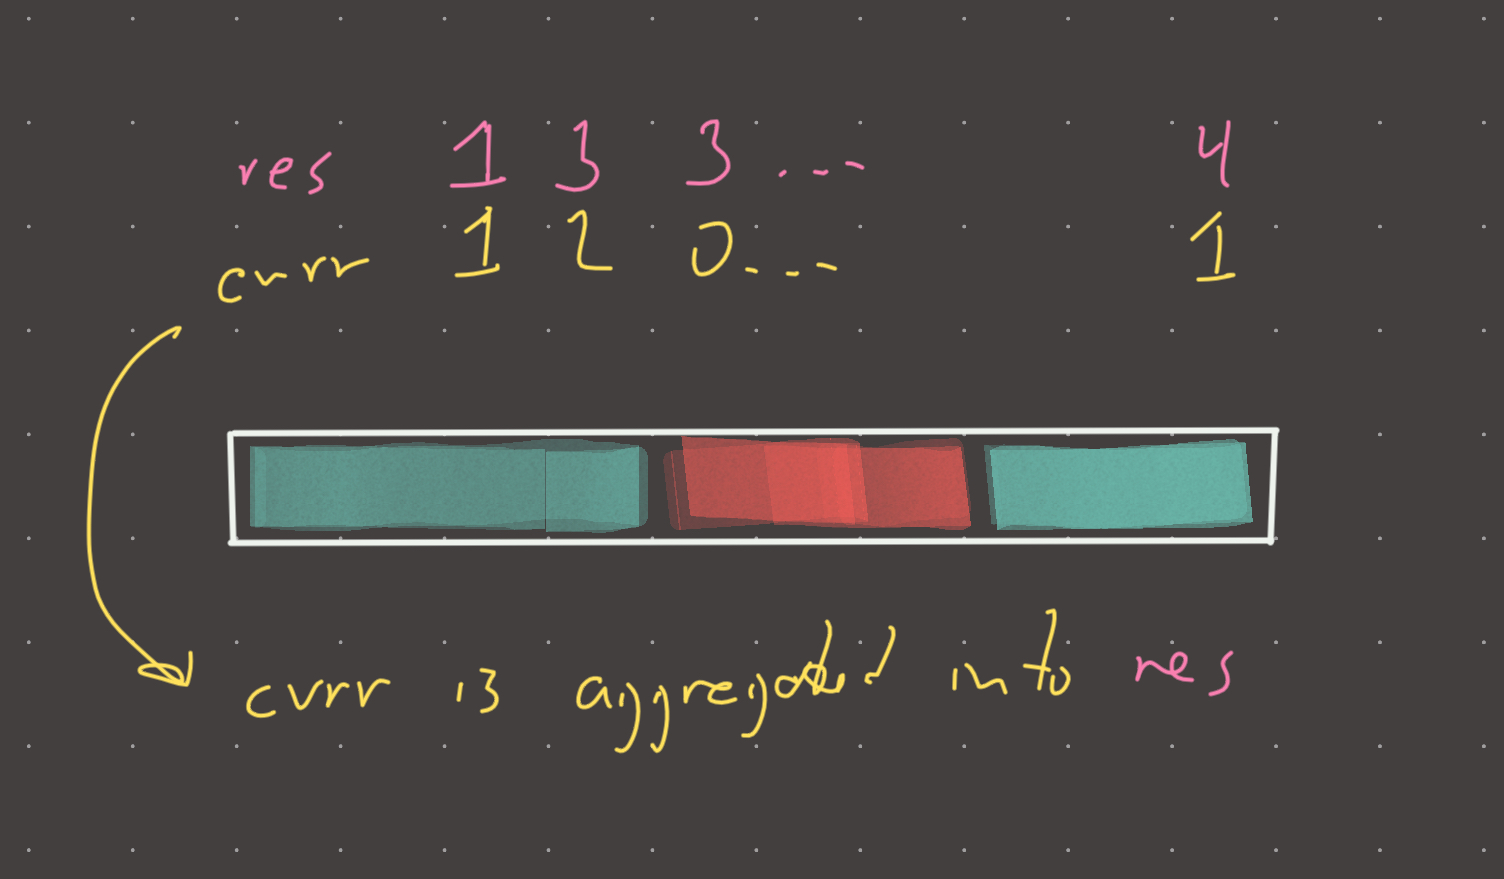 res 1 3 3 ... 4
curr 1 2 0 ... 1
curr is aggregated into res